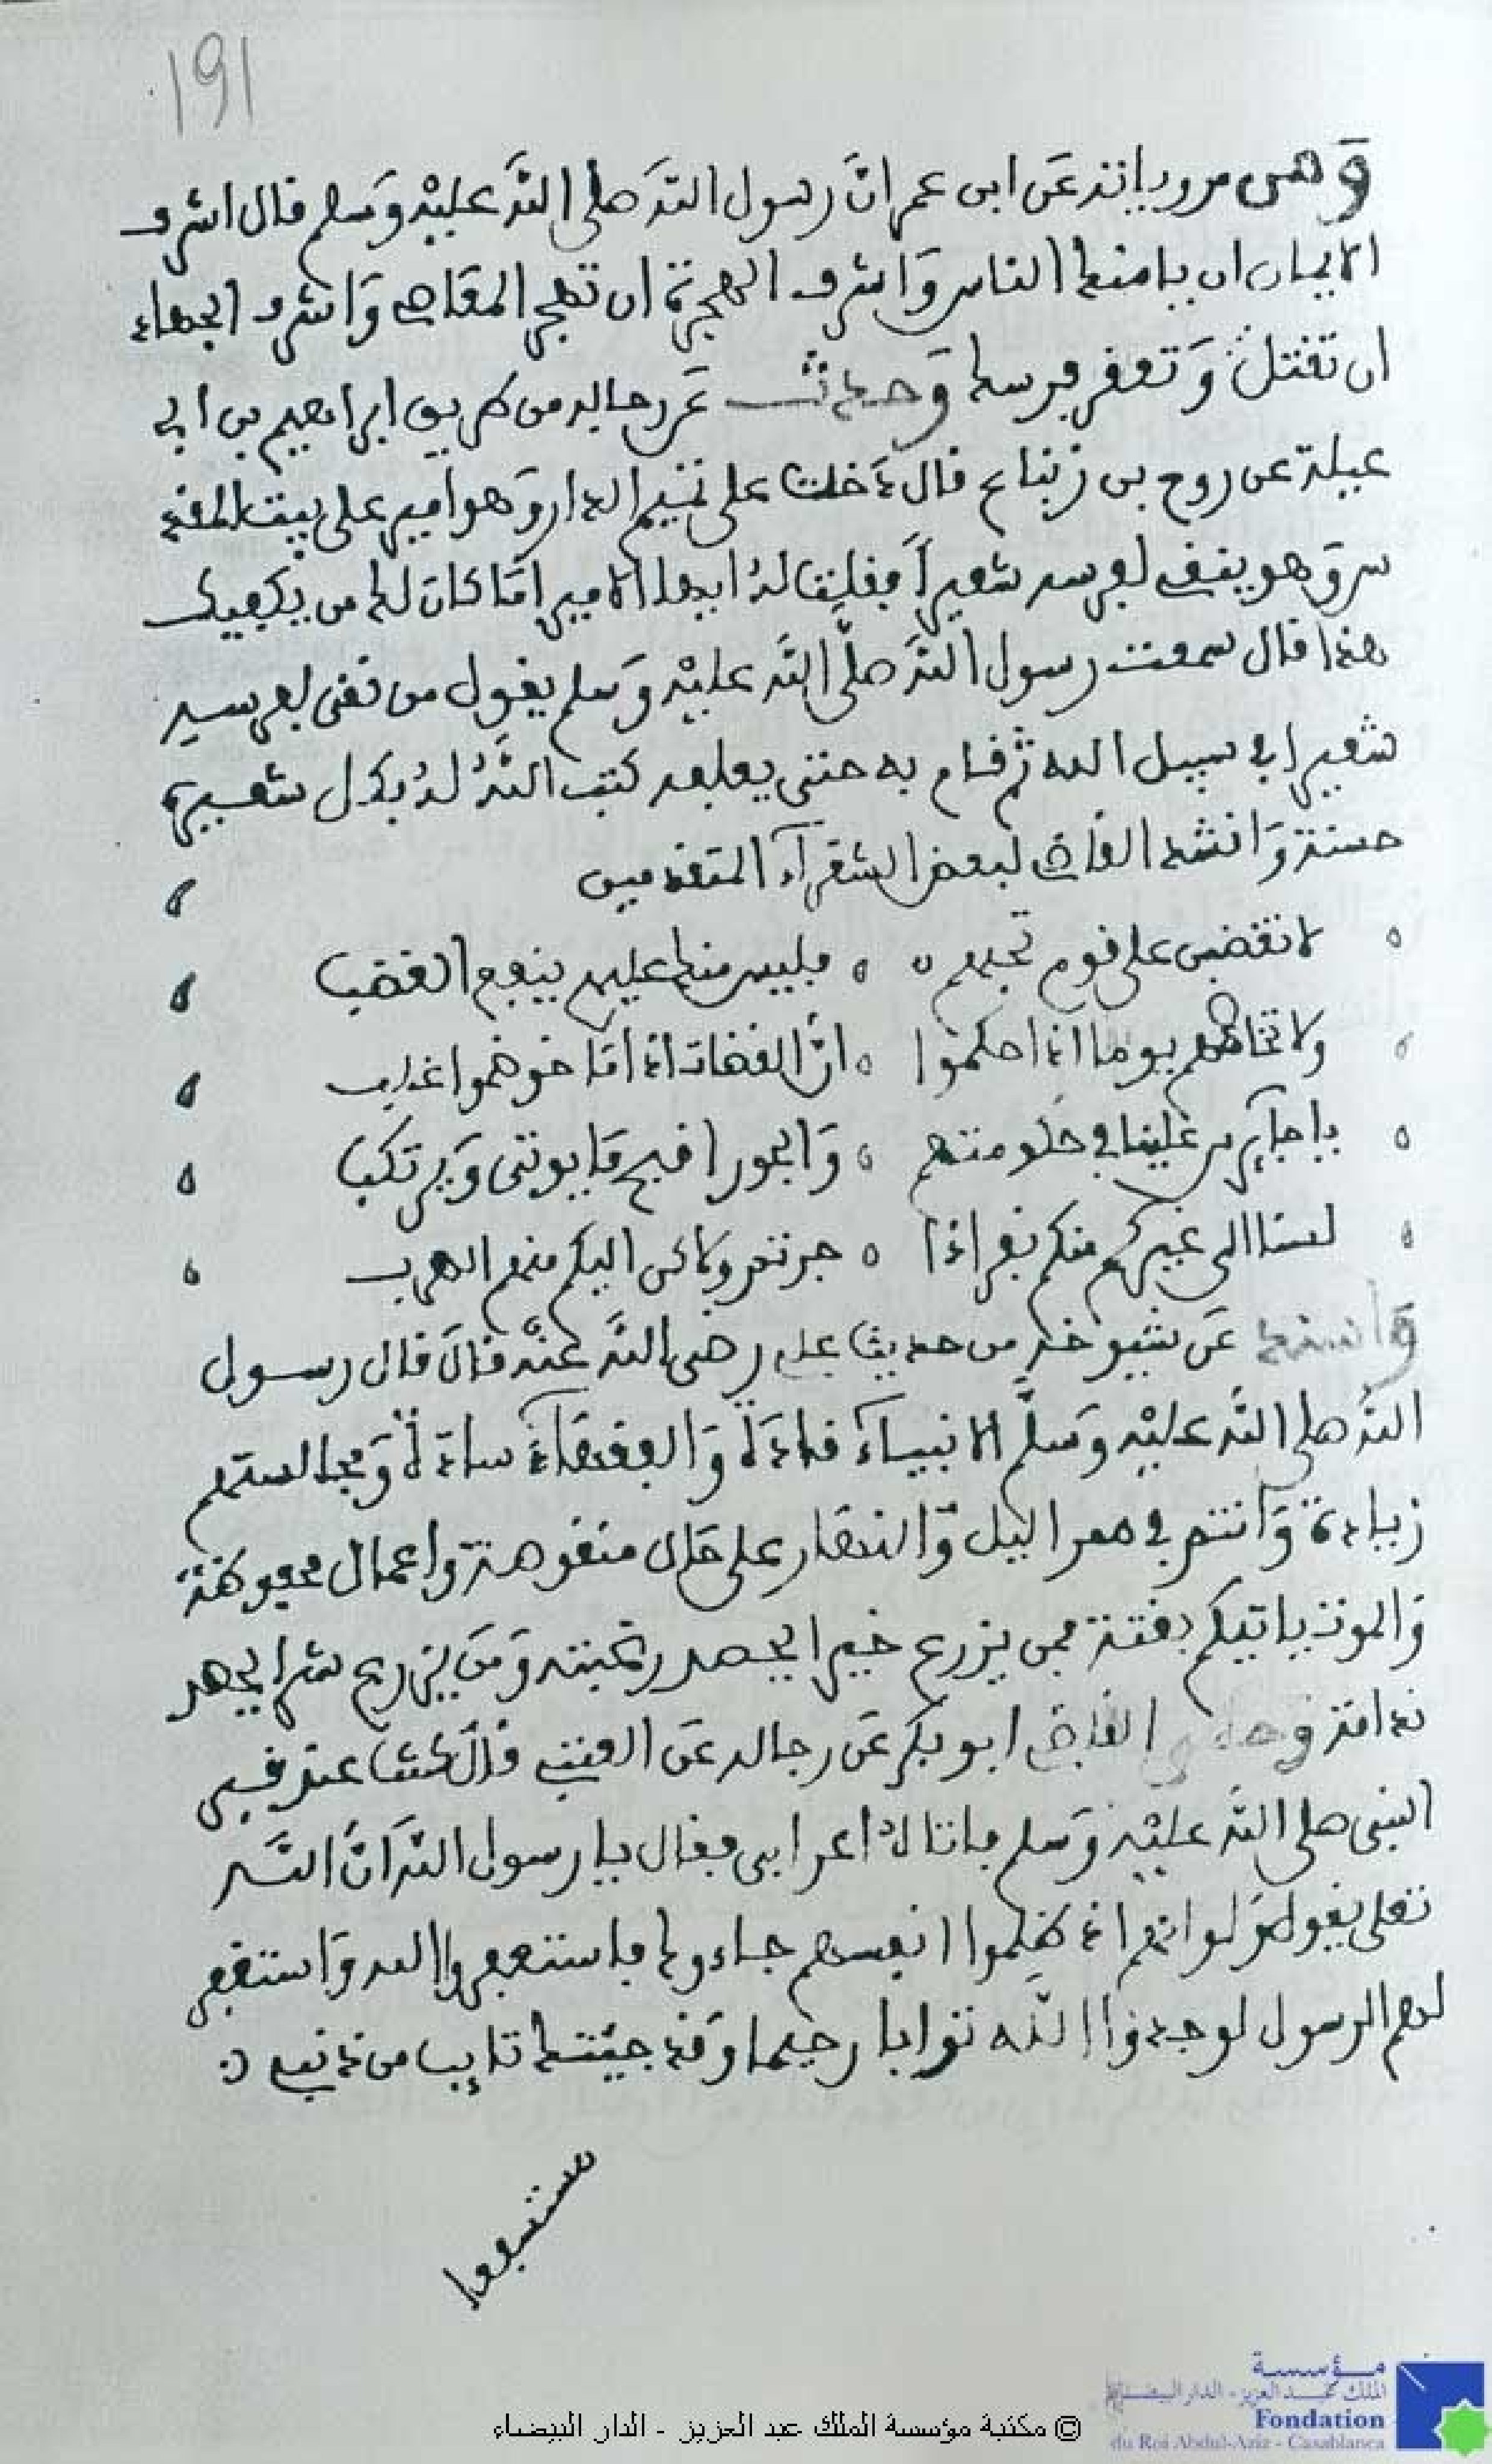 191
ومن مروياته عن ابن عمر ان رسول الله صلى الله عليه وسلم قال اشرف
الايمان ان يامنك الناس واشرف الهجرة ان تهجر المعاصي واشرف الجهاد
ان تقتل وتعقر فرسك وحدث عن رجاله من طريق ابراهيم بن ابي
عبلة عن روح بن زنباع قال دخلت على تميم الدار وهو امير على بيت المقد
س وهو ينقي لفرسه شعيرا فقلت له ايها الامير اما كان لك من يكفيك
هذا قال سمعت رسول الله صلى الله عليه وسلم يقول من نقى لفرسه
شعيرا في سبيل الله ثم قام به حتى يعلفه كتب الله له بكل شعيرة
حسنة وانشد القاضي لبعض الشعرآء المتقدمين
لا تغضبن على قوم تحبهم فليس منك عليهم ينفع الغضب
ولا تخاصمهم يوما اذا حكموا ان القضاة اذا ما خوصموا غلب
يا جآيرين علينا في حكومتهم والجور اقبح ما يوتى ويرتكب
لسنا الى غيركم منكم نفر اذا جرتم ولاكن اليكم منكم الهرب
واسند عن شيوخه من حديث علي رضي الله عنه قال قال رسول
الله صلى الله عليه وسلم الانبياء قادة والفقهاء سادة ومجالستهم
زيادة وانتم في ممر اليل والنهار على حال منقوصة واعمال محفوظة
والموت ياتيكم بغتة فمن يزرع خيرا يحصد رغبته ومن يزرع شرا يحصد
ندامة وحدثني القاضي ابو بكر عن رجاله عن العتبي قال كنت عند قبر
النبي صلى الله عليه وسلم فاتاه اعرابي فقال يا رسول الله ان الله
تعلى يقول ولو انهم اذ ظلموا انفسهم جاءوك فاستغفروا الله واستغفر
لهم الرسول لوجدوا الله توابا رحيما وقد جيتك تايب من ذنبي
© مكتبة مؤسسة الملك عبد العزيز - الدار البيضاء
مؤسسة
الملك عبد العزيز - الدار البيضاء
Fondation
du Roi Abdul-Aziz - Casablanca